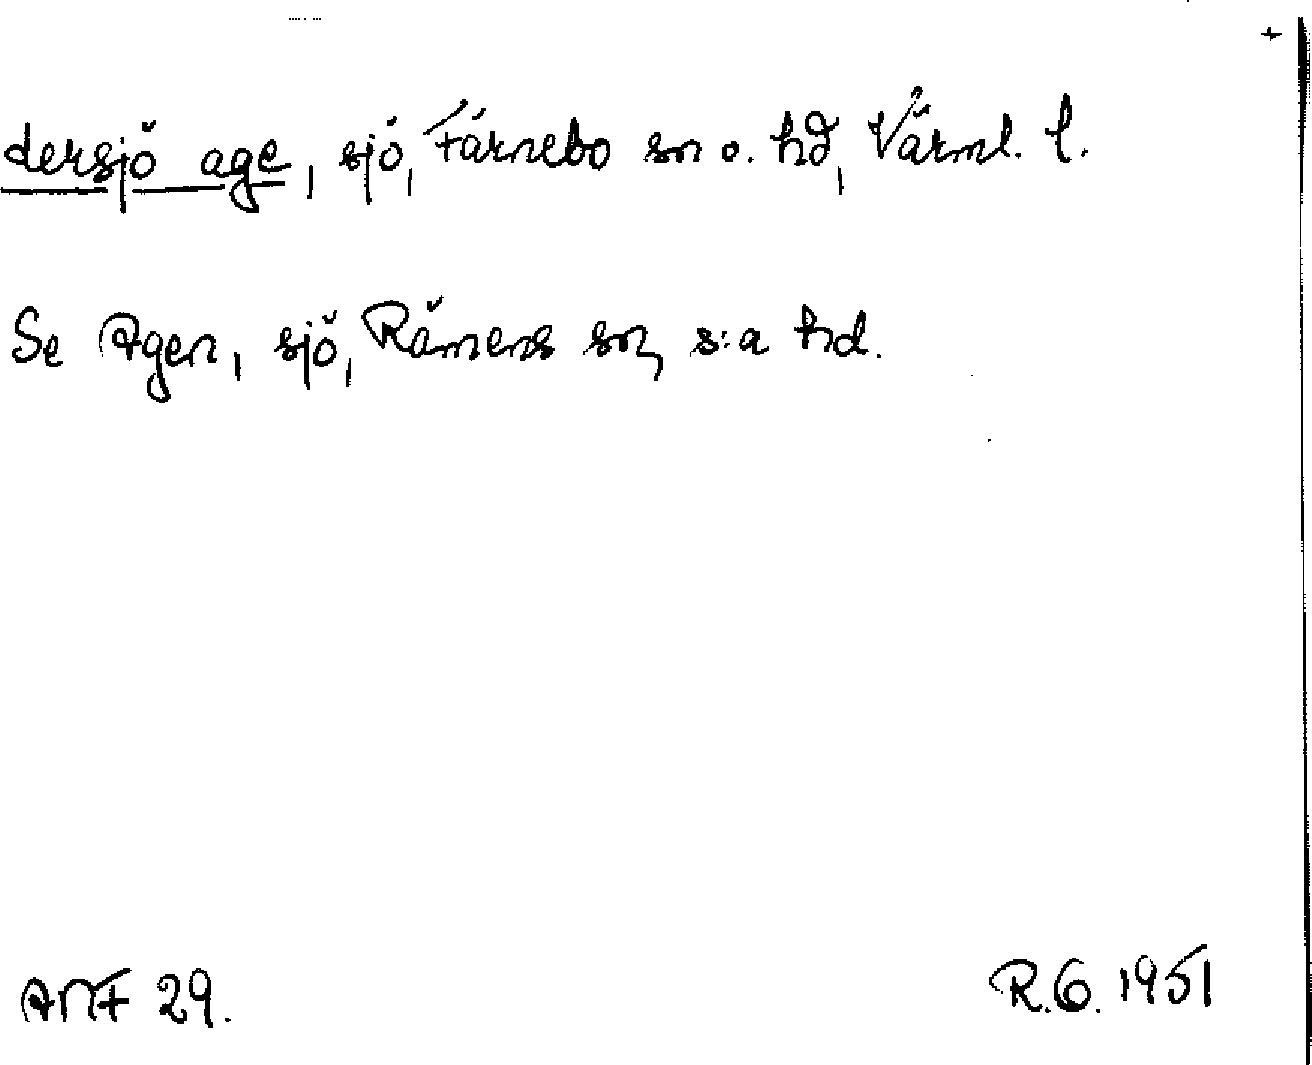 dersjö age, sjö, Färnebo sn o. hd, Värml. l.
Se Agen, sjö, Rämens sn, s:a hd.
ANF 29.
R.G. 1951